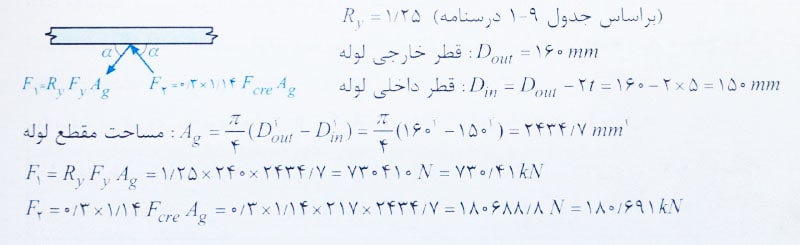 (براساس جدول ۹-۱ درسنامه) R_y = ۱/۲۵
قطر خارجی لوله : D_out = ۱۶۰ mm
قطر داخلی لوله : D_in = D_out − ۲t = ۱۶۰ − ۲×۵ = ۱۵۰ mm
α α
F_۱=R_y F_y A_g
F_۲=۰/۳×۱/۱۴ F_cre A_g
مساحت مقطع لوله : A_g = π/۴ (D²_out − D²_in) = π/۴ (۱۶۰² − ۱۵۰²) = ۲۴۳۴/۷ mm²
F_۱ = R_y F_y A_g = ۱/۲۵×۲۴۰×۲۴۳۴/۷ = ۷۳۰۴۱۰ N = ۷۳۰/۴۱ kN
F_۲ = ۰/۳×۱/۱۴ F_cre A_g = ۰/۳×۱/۱۴×۲۱۷×۲۴۳۴/۷ = ۱۸۰۶۸۸/۸ N = ۱۸۰/۶۹۱ kN